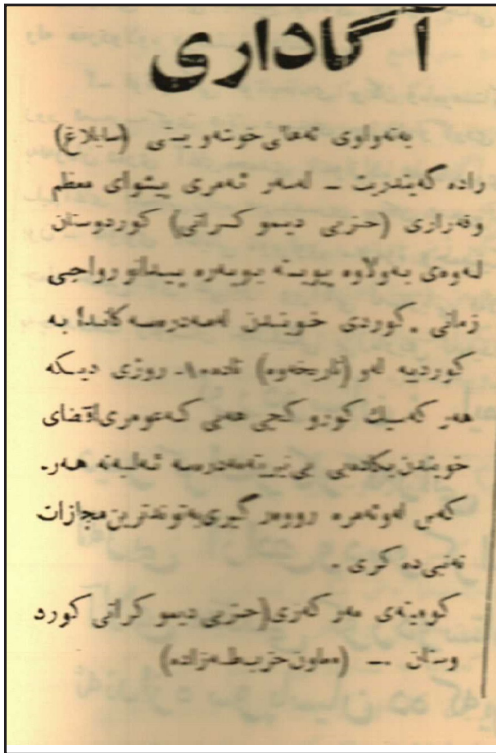 آگاداری
بەتەواوی ئەهالی خوشەویستی (سابلاغ)
رادەگەیندریت ــ لەسەر ئەمری پیشوای معظم
وقەراری (حیزبی دیموکراتی) کوردوستان
لەوەی بەولاوە پیویستە بوبەرە پیدانو رواجی
زمانی کوردی خویندن لەمەدرەسەکاندا بە
کوردییە لەو (تاریخەوە) تادە روژی دیکە
هەر کەسیك کوروکچی هەیی کەعومری اقتضای
خویندن بکا دەبی بی نیریتەمەدرەسە ئەلبەتە هەر.
کەس لەو ئەمرە روووەرگیری بەتوندترین مجازات
تەنبی دە کری .
کومیتەی مەرکەزی(حیزبی دیموکراتی کورد
وستان ــ (معاون حزب طەزادە)